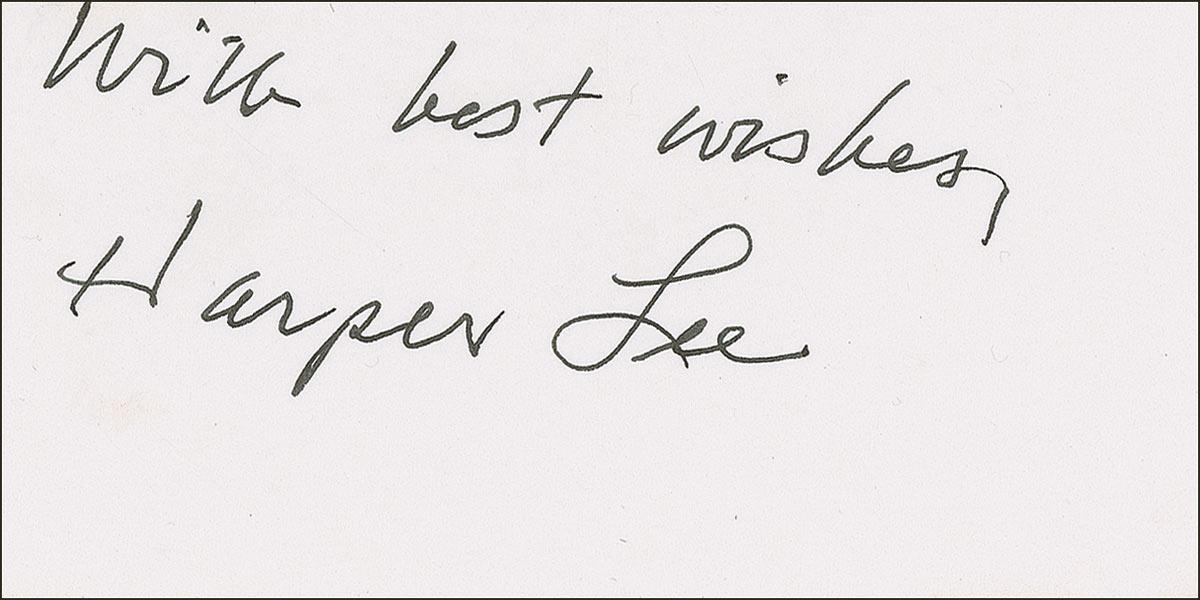 With best wishes,
Harper Lee